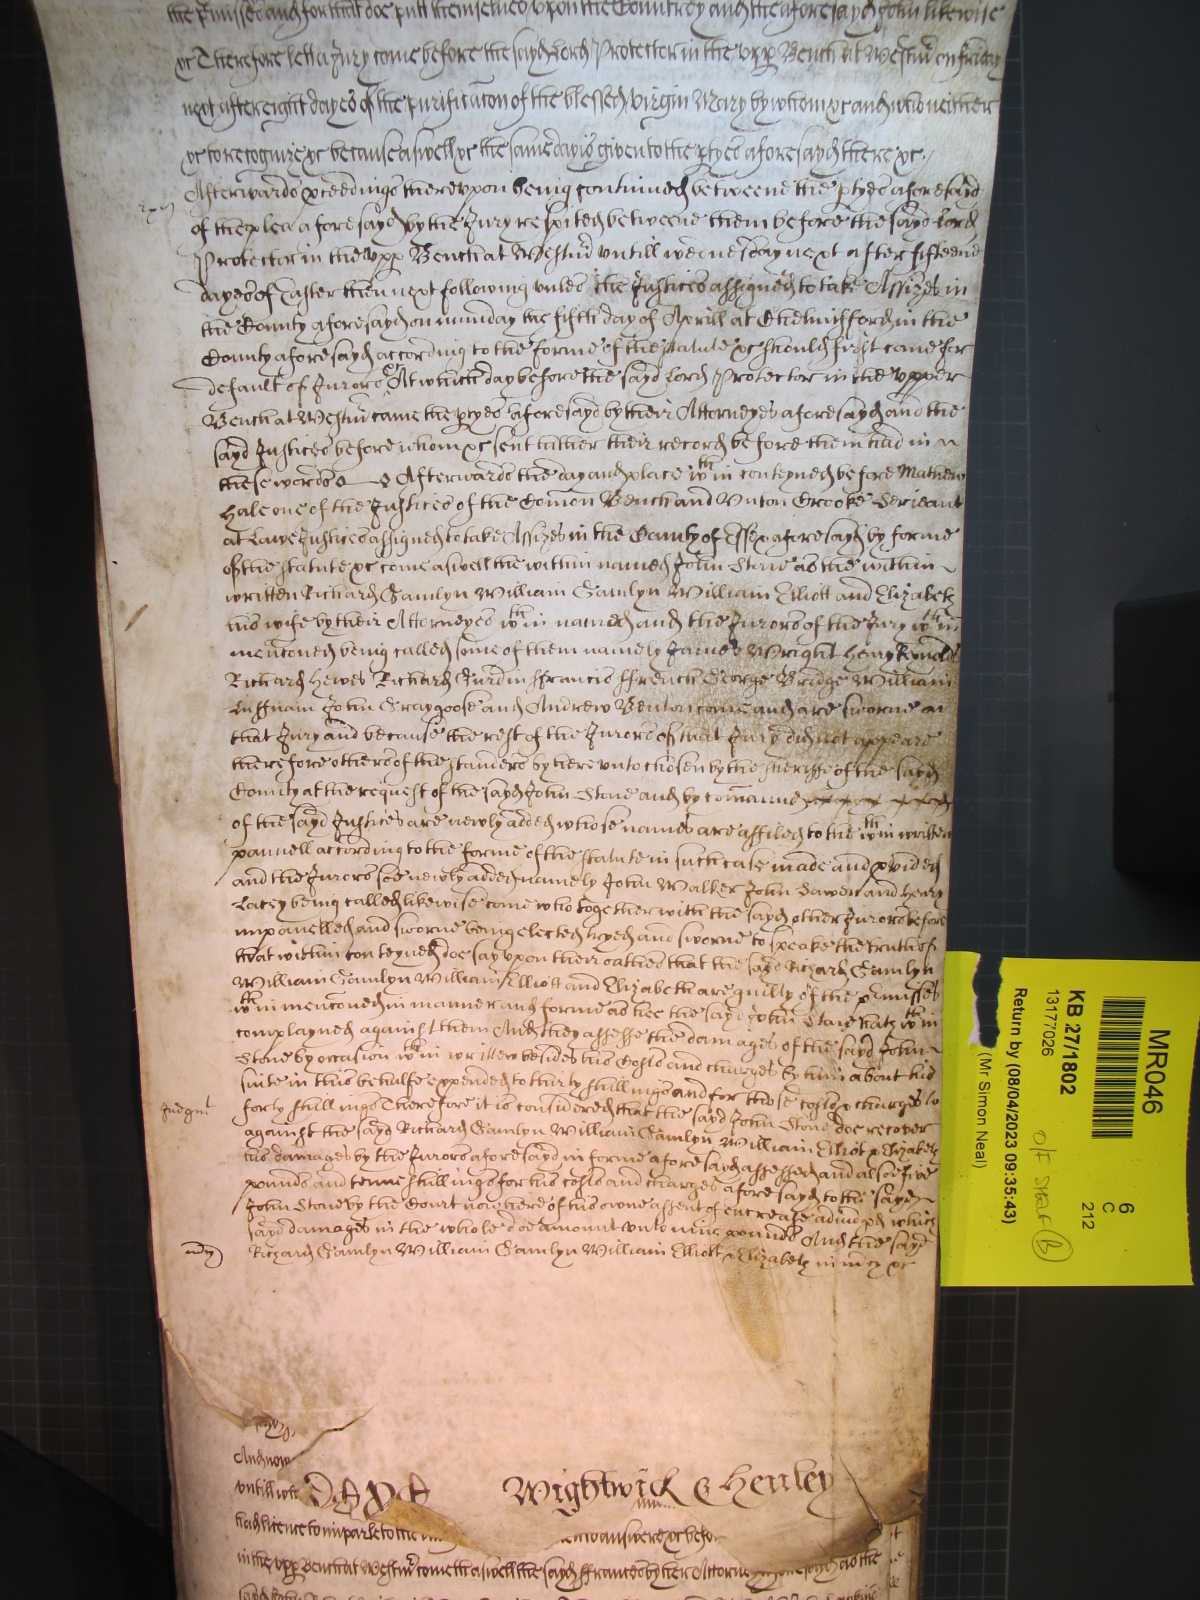 the p'misses and for that doe putt themselves upon the Countrey and the aforesayd John likewise
&c Therefore lett a Jury come before the sayd Lord Protector in the upp Bench at Westm' on friday
next after eight dayes of the purificacon of the blessed virgin Mary by whom &c and who neither
&c to recognize &c because aswell &c the same day is given to the ptyes aforesayd there &c
Afterwards pceedings thereupon being continued betweene the ptyes aforesaid
of the plea aforesayd by the Jury respited betweene them before the sayd Lord
Protector in the upp Bench at Westm' untill wednesday next after fifteene
dayes of Easter then next following unles the Justices assigned to take Assizes in
the County aforesayd on munday the fifth day of Aprill at Chelmisford in the
County aforesayd according to the forme of the statute &c should first come for
default of Jurors At which day before the sayd Lord Protector in the upper
Bench at Westm' came the ptyes aforesayd by their Attorneyes aforesayd and the
sayd Justices before whom &c sent hither their record before them had in
these words Afterwards the day and place wthin conteyned before Mathew
Hale one of the Justices of the Comon Bench and Unton Crooke Serieant
at Lawe Justices assigned to take Assizes in the County of Essex aforesayd by forme
of the statute &c come aswell the within named John Stone as the within
written Richard Gamlyn William Gamlyn William Elliott and Elizabeth
his wife by their Attorneyes wthin named and the Jurors of the Jury wthin
menconed being called some of them namely James Wright Henry Reynolds
Richard Hewes Richard Jurdin ffrancis ffrench George Bridge William
Luffnam John Graygoose and Andrew Benton come and are sworne on
that Jury and because the rest of the Jurors of that Jury did not appeare
therefore others of the standers by hereunto chosen by the sheriffe of the sayd
County at the request of the sayd John Stone and by comaund
of the sayd Justices are newly added whose names are affiled to the wthin written
pannell according to the forme of the statute in such case made and pvided
and the Jurors soe newly added namely John Walker John Sawen and Henry
Lacey being called likewise come who together with the sayd other Jurors before
impanelled and sworne being elected tryed and sworne to speake the truth of
that within conteyned doe say upon their oathes that the sayd Richard Gamlyn
William Gamlyn William Elliott and Elizabeth are guilty of the p'misses
wthin menconed in manner and forme as hee the sayd John Stone hath wthin
complayned against them And they assesse the damages of the sayd John
Stone by occasion wthin written besides his Costs and charges by him about his
suite in this behalfe expended to thirty shillings and for those costs & charges to
Judgmt
forty shillings Therefore it is considered that the sayd John Stone doe recover
against the sayd Richard Gamlyn William Gamlyn William Elliot & Elizabeth
his damages by the Jurors aforesayd in forme aforesayd assessed and alsoe five
pounds and tenne shillings for his costs and charges aforesayd to the sayd
John Stone by the Court now here of his owne assent of encrease adiudged which
sayd damages in the whole doe amount unto nine pounds And the sayd
mcy
Richard Gamlyn William Gamlyn William Elliott & Elizabeth in mcy &c
And now
untill
Wightwick & Henley
had licence to imparle to the
answere &c before
in the upp Bench at Westm' come aswell the sayd ffrances by her Attorney
MR046
6
C
212
KB 27/1802
13177026
Return by (08/04/2023 09:35:43)
(Mr Simon Neal)